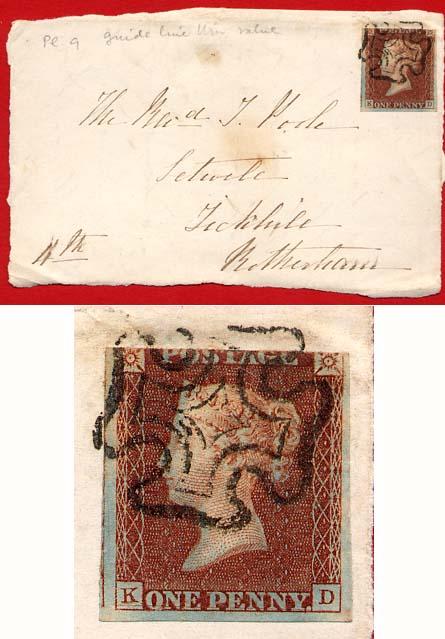 Pl. 9 guide line thro value
POSTAGE
K D
ONE PENNY
The Revd J.
Tickhill
Rotherham
POSTAGE
K ONE PENNY. D